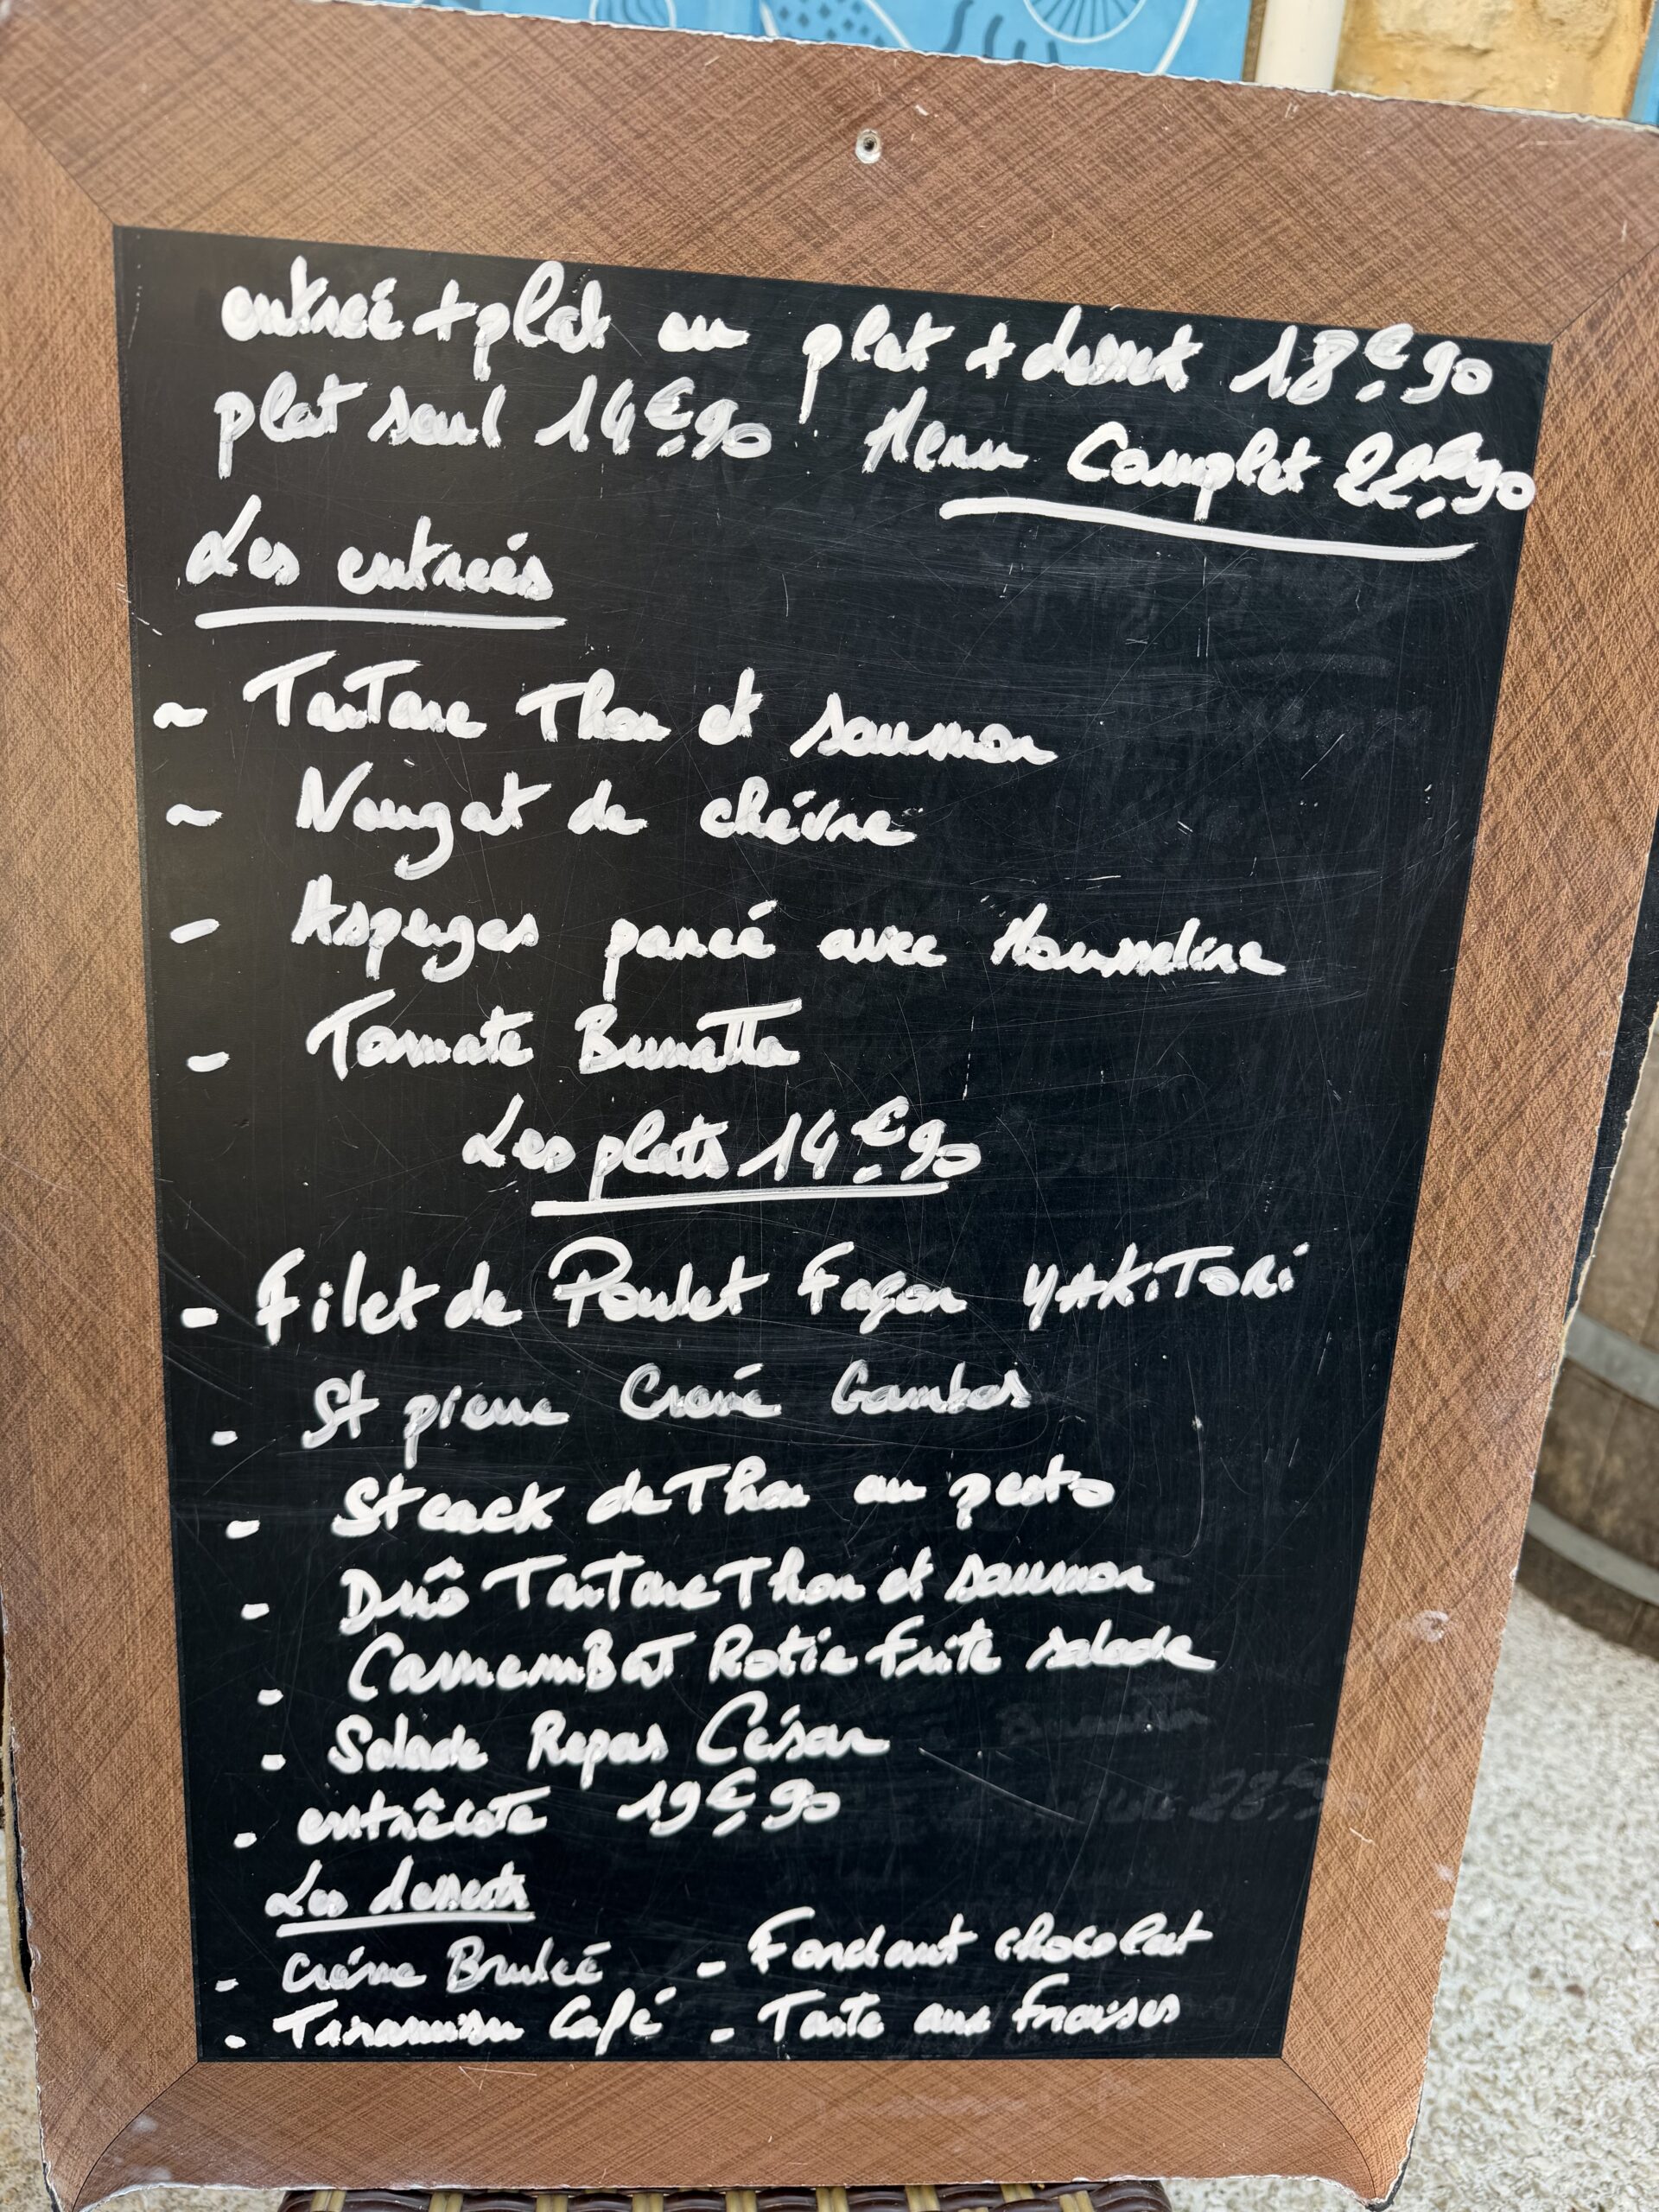 entrée + plat ou plat + dessert 18€,90
plat seul 14€,90 Menu Complet 22€,90
Les entrées
~ Tartare Thon et saumon
~ Nougat de chèvre
- Asperges pancé avec Mousseline
- Tomate Burratta
Les plats 14€,90
- Filet de Poulet Façon YAKiTORi
- St pierre Gambas
- Steack de Thon au pesto
- Duô Tartare Thon et saumon
- CamemBert Rotie frite salade
- Salade Repas César
- entrêcote 19€,90
Les desserts
- crème Brulée - Fondant chocolat
- Tiramisu Café - Tarte aux fraises